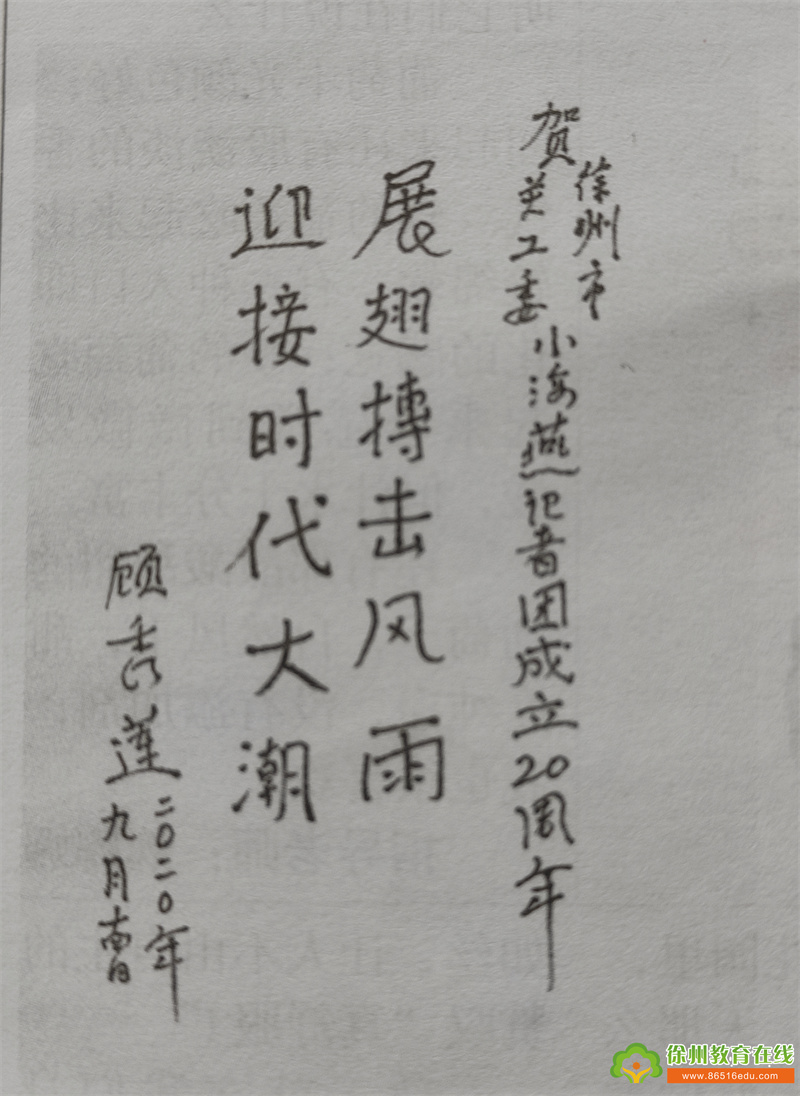 贺
徐州市
关工委
小海燕记者团成立20周年
展翅搏击风雨
迎接时代大潮
顾秀莲
二〇二〇年
九月
徐州教育在线
www.86516edu.com